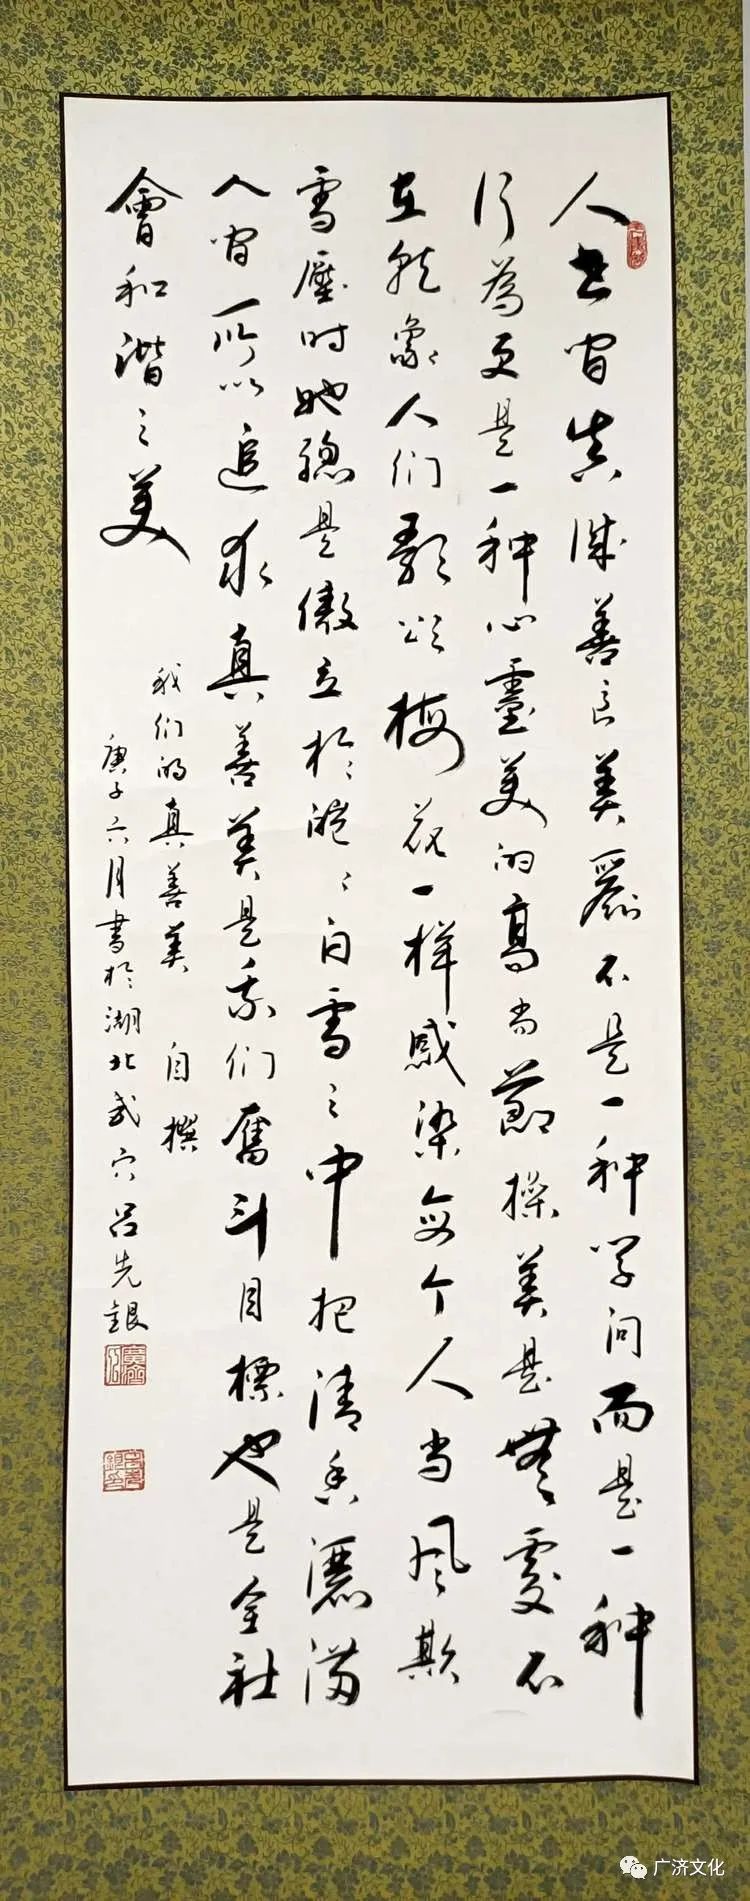 人世间真诚善良美麗不是一种学问而是一种
行為更是一种心靈美的高尚節操美是無處不
在就象人们歌颂梅花一样感染每个人当风欺
雪壓时她總是傲立於皑々白雪之中把清香灑满
人间所以追求真善美是我们奮斗目標也是全社
會和谐之美
我们的真善美 自撰
庚子六月書於湖北武穴吕先銀
广济文化